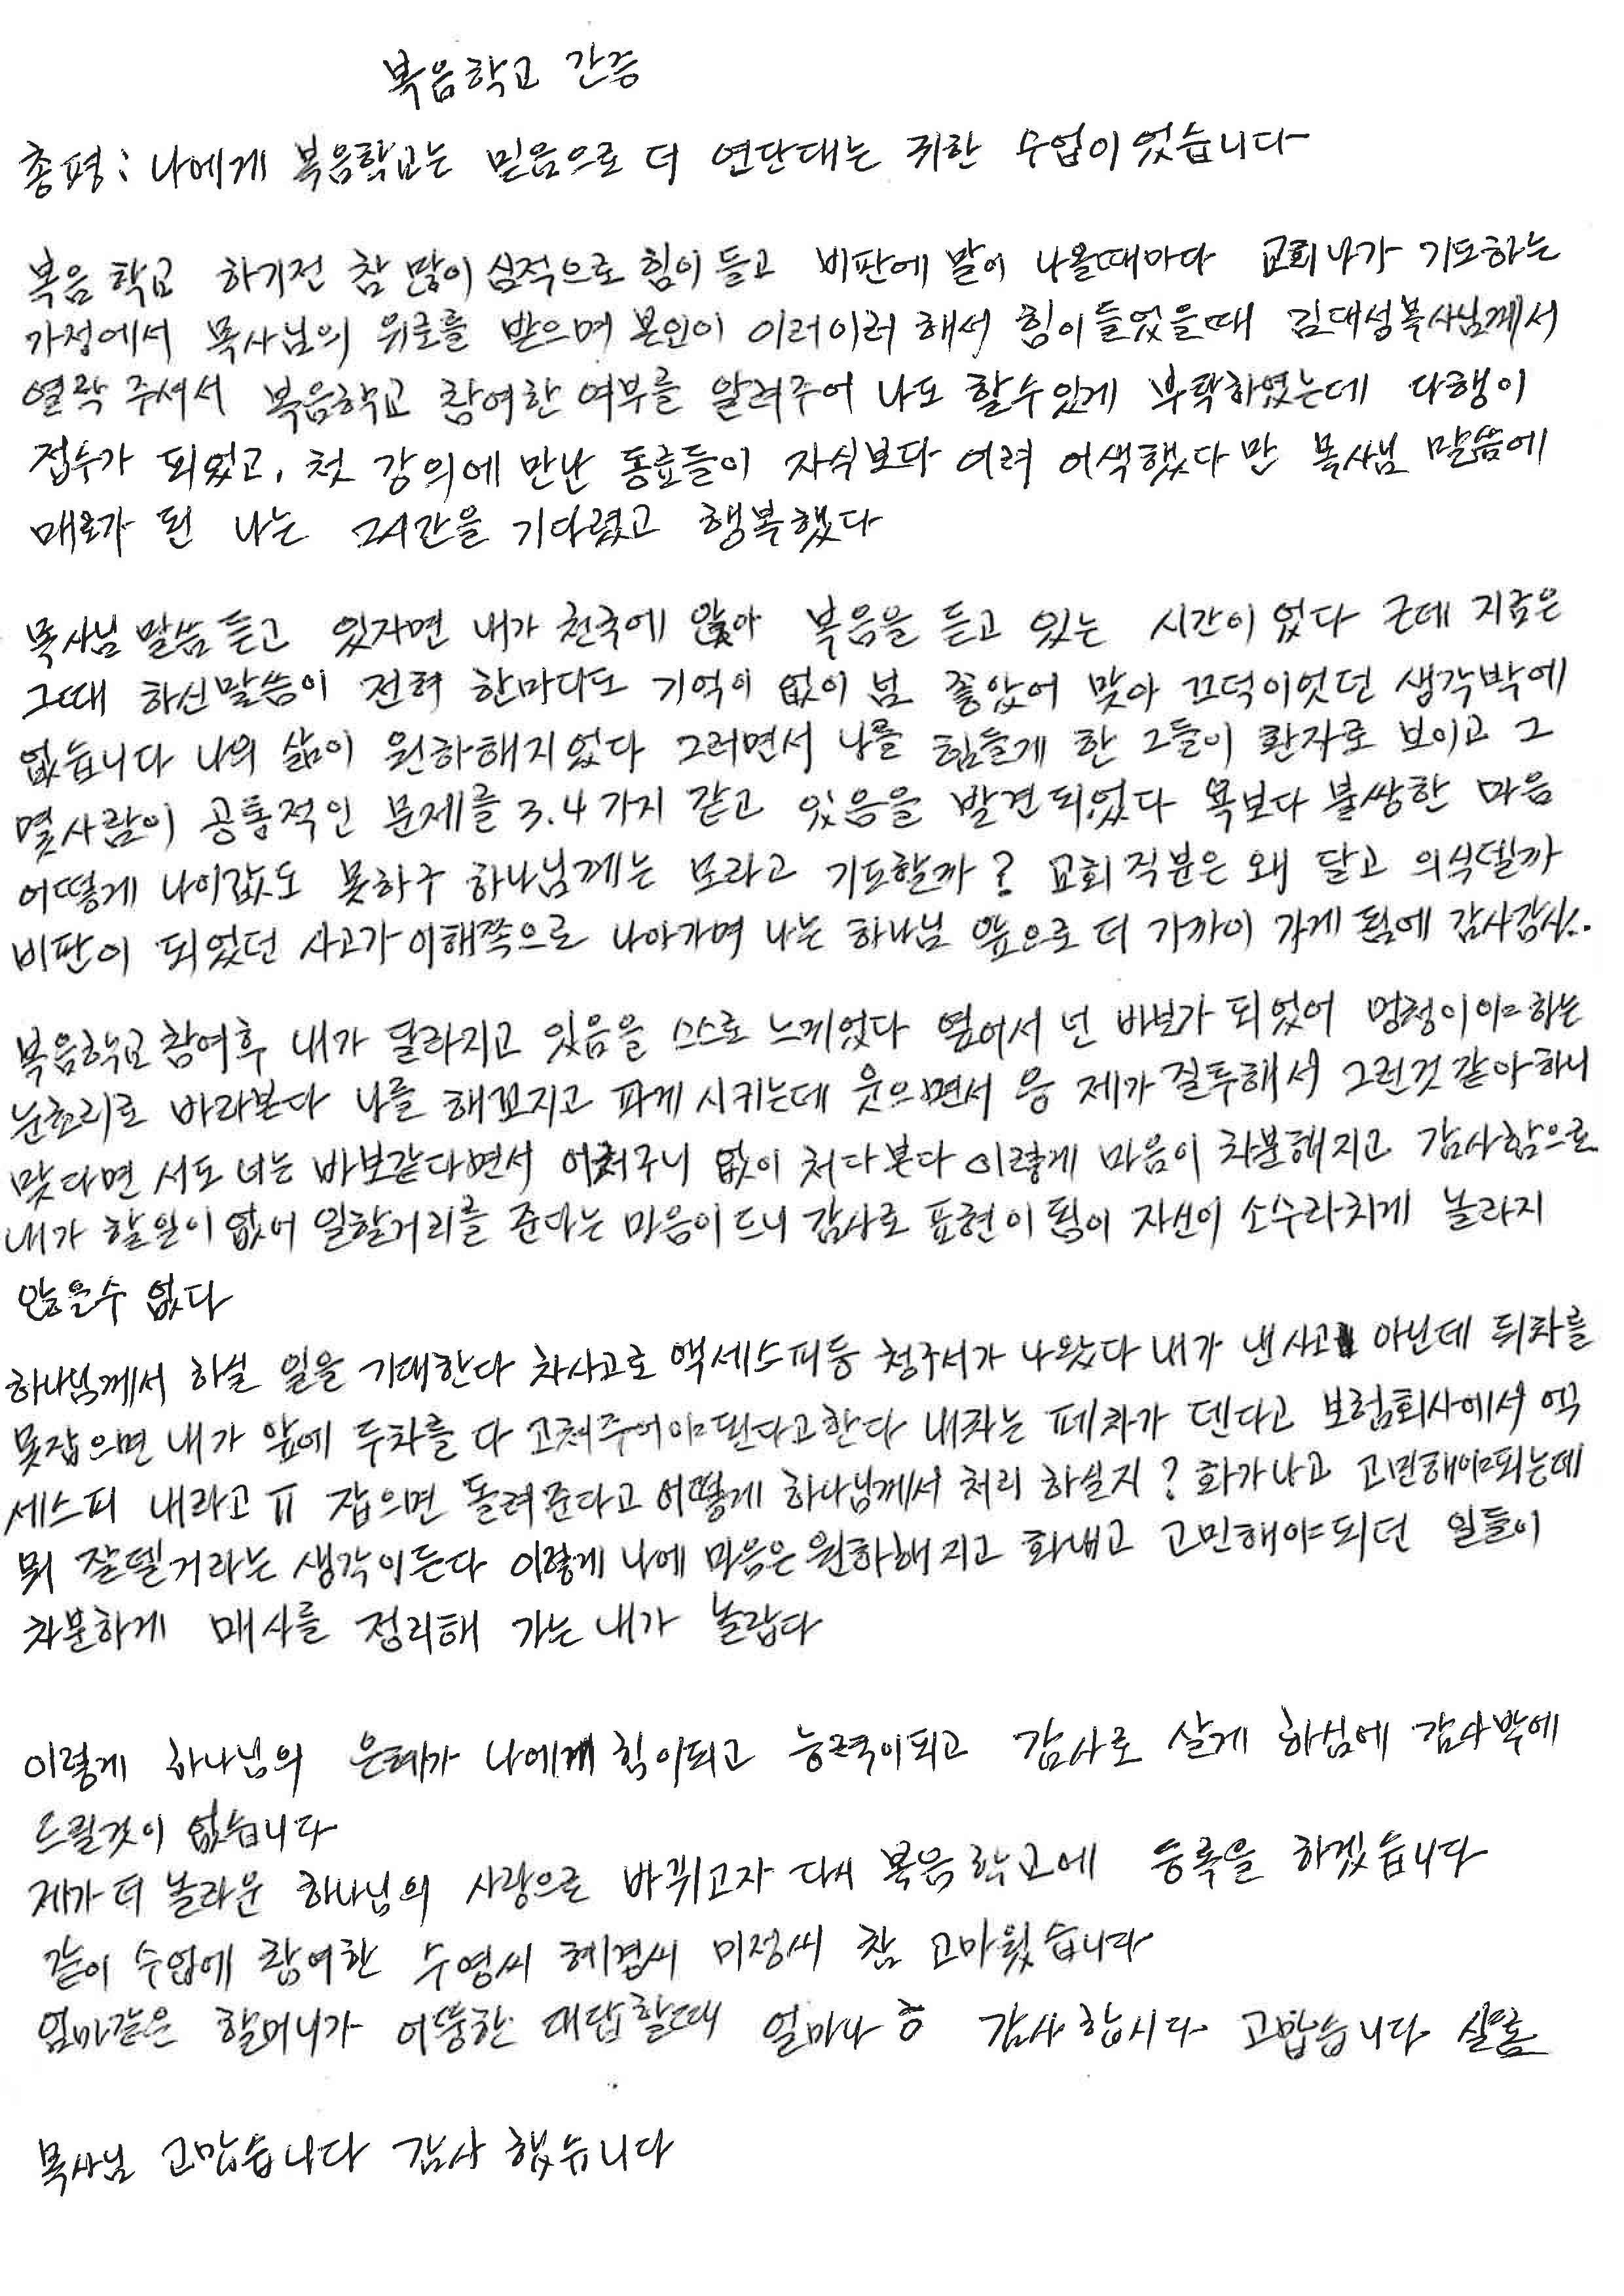 복음학교 간증
총평: 나에게 복음학교는 믿음으로 더 연단대는 귀한 수업이었습니다
복음학교 하기전 참 많이 심적으로 힘이 들고 비판에 말이 나올때마다 교회 나가 기도하는
가정에서 목사님의 위로를 받으며 본인이 이러이러 해서 힘이들었을때 김대성목사님께서
연락 주셔서 복음학교 참여한 여부를 알려주어 나도 할수있게 부탁하였는데 다행이
접수가 되었고, 첫 강의에 만난 동료들이 자식보다 어려 어색했다만 목사님 말씀에
매료가 된 나는 그시간을 기다렸고 행복했다
목사님 말씀 듣고 있자면 내가 천국에 앉아 복음을 듣고 있는 시간이었다 근데 지금은
그때 하신말씀이 전혀 한마디도 기억이 없이 넘 좋았어 맞아 끄덕이엇던 생각박에
없습니다 나의 삶이 원하해지었다 그러면서 나를 힘들게 한 그들이 환자로 보이고 그
몇사람이 공통적인 문제를 3.4가지 같고 있음을 발견되었다 욕보다 불쌍한 마음
어떻게 나이값도 못하구 하나님께는 모라고 기도할까? 교회직분은 왜 달고 의식델까
비판이 되었던 사고가 이해쪽으로 나아가며 나는 하나님 앞으로 더 가까이 가게 됨에 감사감사..
복음학교 참여후 내가 달라지고 있음을 스스로 느끼었다 옆어서 넌 바보가 되었어 멍청이야 하는
눈초리로 바라본다 나를 해꼬지고 파게 시키는데 웃으면서 응 제가 질투해서 그런것 같아 하니
맞다면 서도 너는 바보같다면서 어처구니 없이 처다본다 이렇게 마음이 차분해지고 감사함으로
내가 할일이 없어 일할거리를 준다는 마음이 드니 감사로 표현이 됨이 자신이 소수라치게 놀라지
않을수 없다
하나님께서 하실 일을 기대한다 차사고로 액세스피등 청구서가 나왔다 내가 낸 사고 아닌데 뒤차를
못잡으면 내가 앞에 두차를 다 고쳐주어야된다고한다 내차는 폐차가 덴다고 보험회사에서 엑
세스피 내라고 ㅠ 잡으면 돌려준다고 어떻게 하나님께서 처리 하실지? 화가나고 고민해야되는데
뭐 잘델거라는 생각이든다 이렇게 나에 마음은 원하해지고 화내고 고민해야되던 일들이
차분하게 매사를 정리해 가는 내가 놀랍다
이렇게 하나님의 은혜가 나에게 힘이되고 능력이되고 감사로 살게 하심에 감사박에
드릴것이 없습니다
제가 더 놀라운 하나님의 사랑으로 바뀌고자 다시 복음학교에 등록을 하겠습니다
같이 수업에 참여한 수영씨 혜겸씨 미정씨 참 고마웠습니다
엄마같은 할머니가 어뚱한 대답할때 얼마나 ㅎ 감사합시다 고맙습니다 샬롬
목사님 고맙습니다 감사했습니다